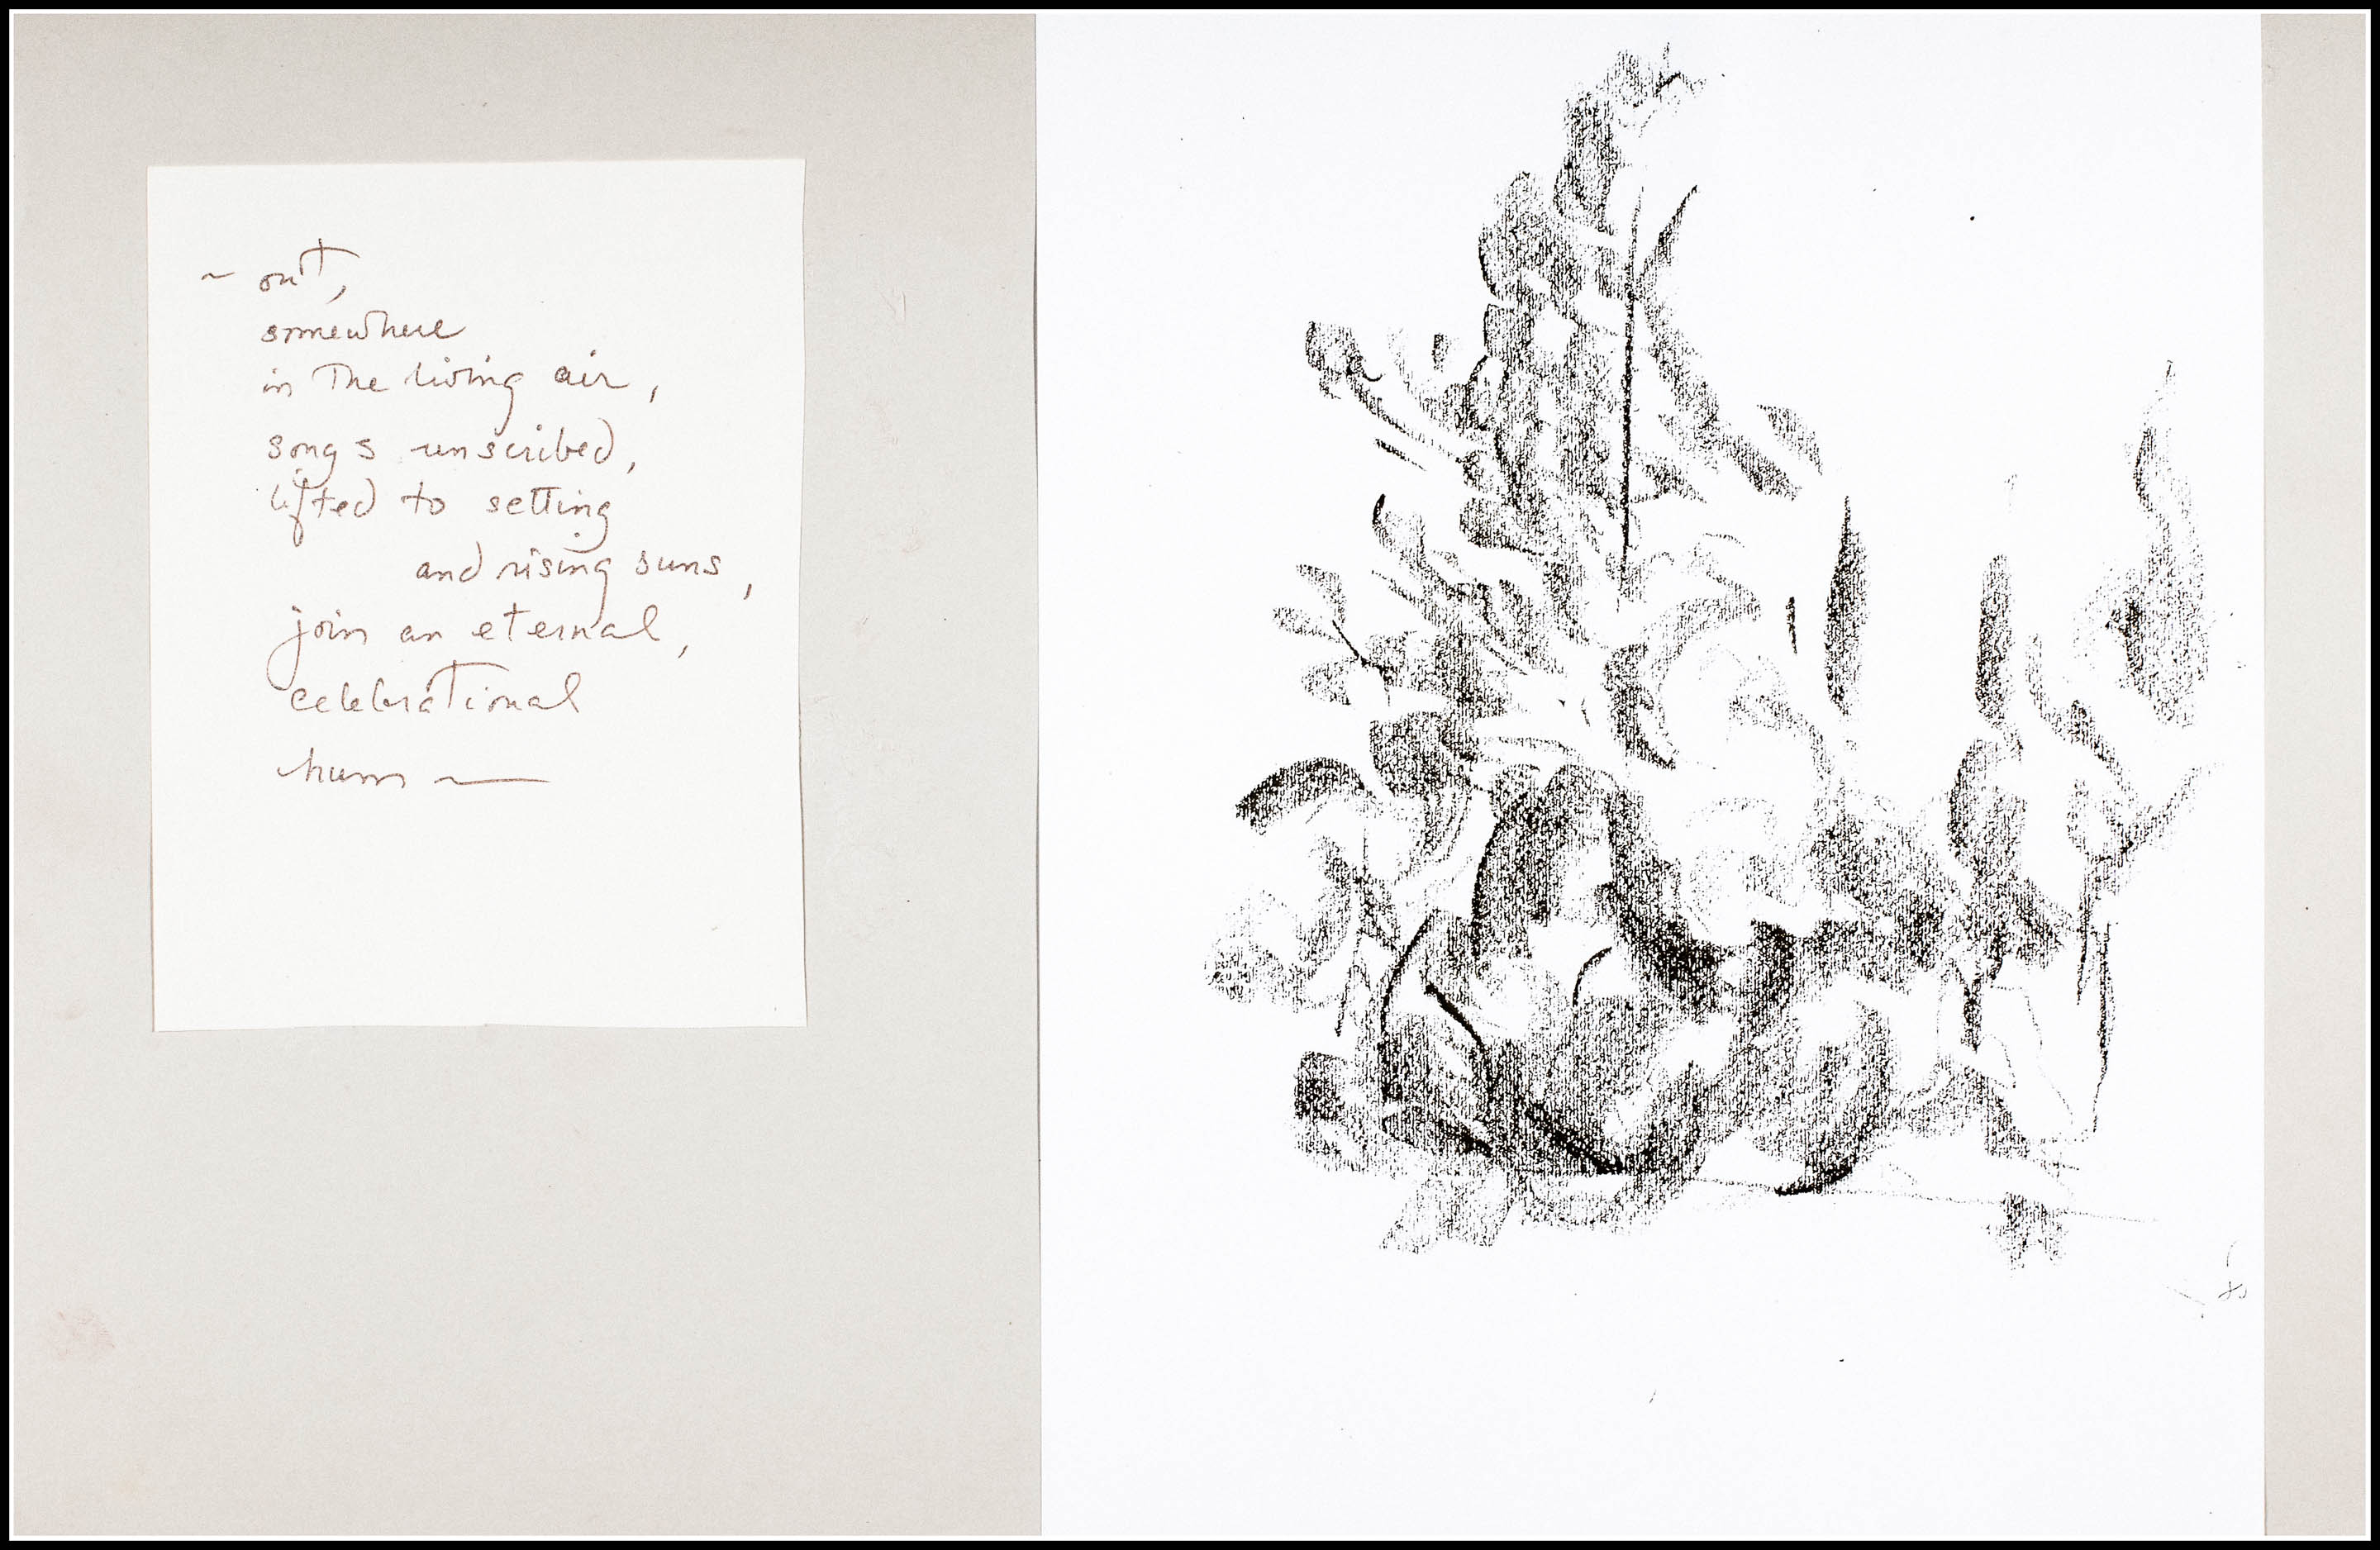 ~ out,
somewhere
in The living air,
songs unscribed,
lifted to setting
and rising suns,
join an eternal,
celebrational
hum ~